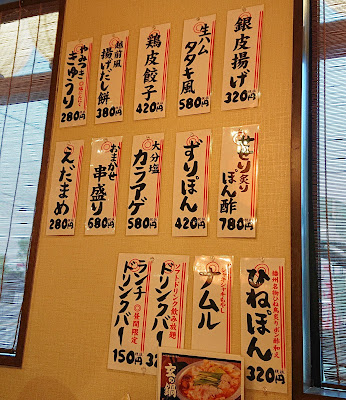 銀皮揚げ
320円
生ハム
タタキ風
580円
鶏皮餃子
420円
越前風
揚げだし餅
380円
やみつき
きゅうり
280円
せせり炙り
ぽん酢
780円
ずりぽん
420円
大分塩
カラアゲ
580円
おまかせ
串盛り
680円
えだまめ
280円
播州名物ひね鳥炙りポン酢和え
ひねぽん
320円
ナムル
ソフトドリンク飲み放題
ドリンクバー
ランチ
昼間限定
ドリンクバー
150円
の鍋